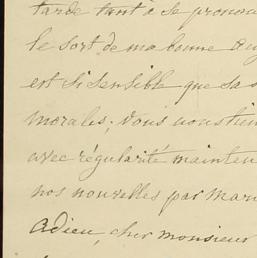 tarde tant à se prononc
le sort de ma bonne Aug
est si sensible que sa s
morales; vous nous tien
avec régularité mainten
nos nouvelles par Mar
Adieu, cher monsieur